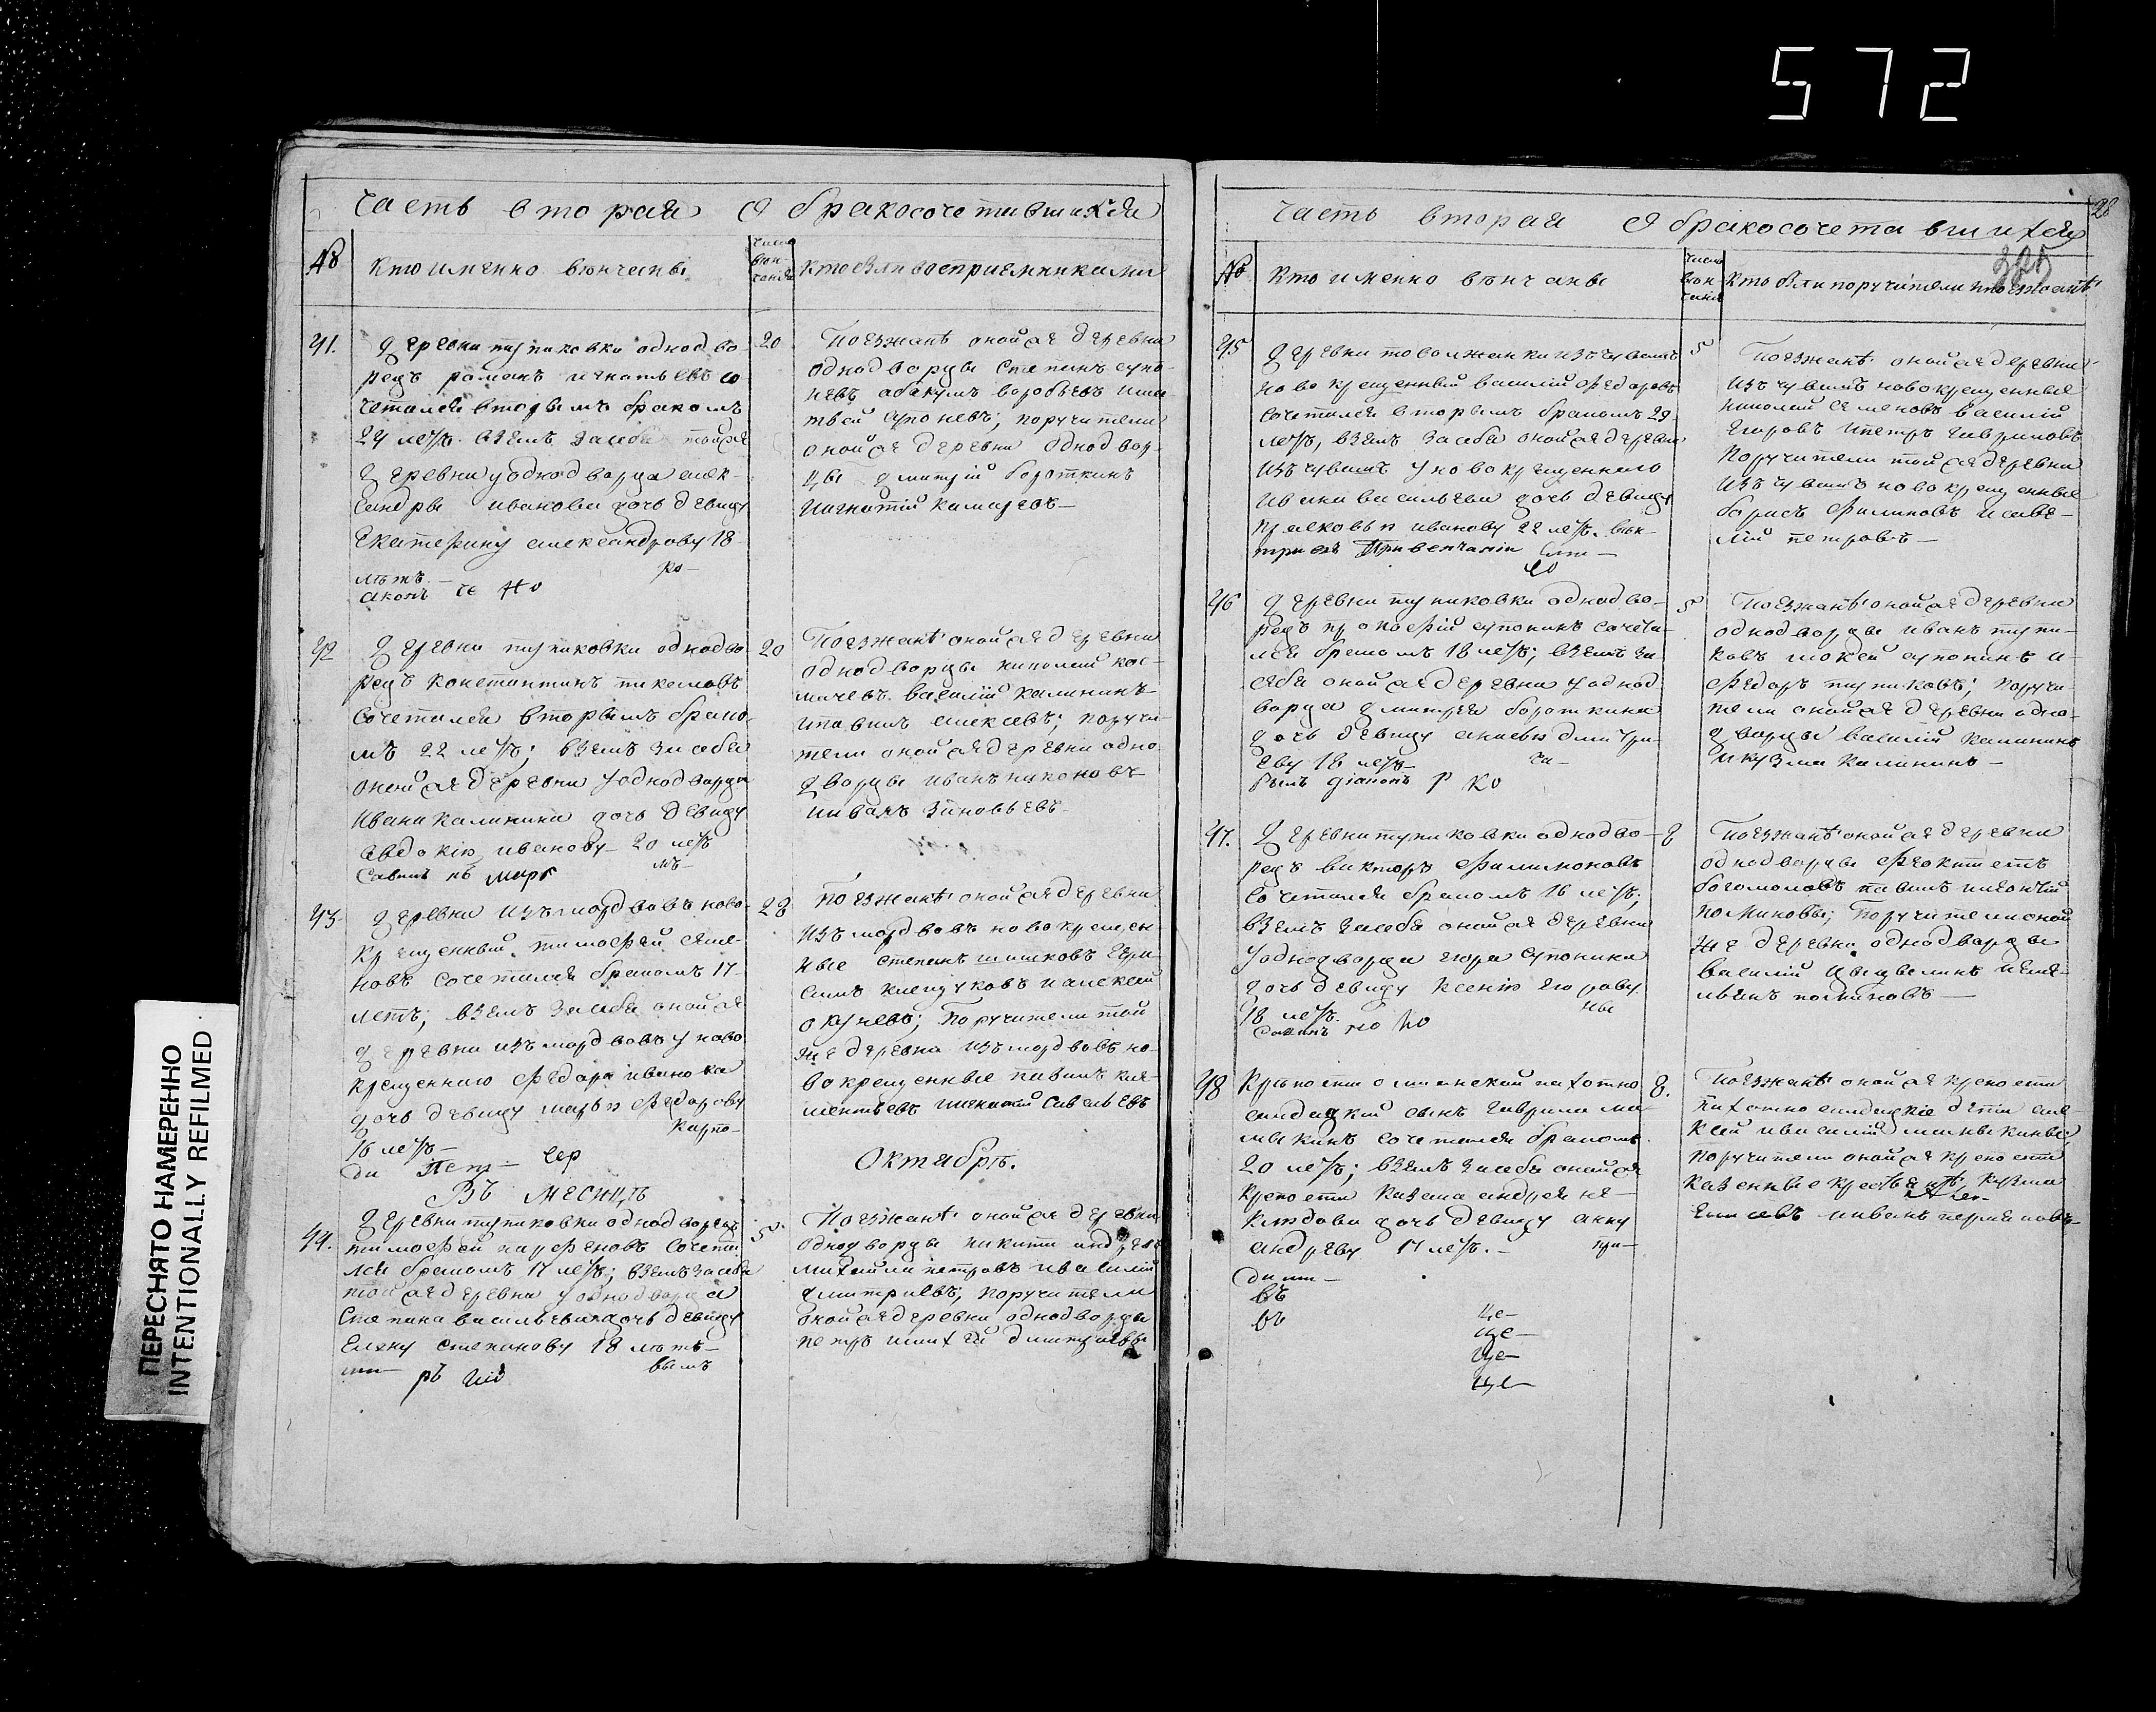 572
часть вторая О бракосочетавшихся
№
кто именно венчаны
число
вен-
чания
кто были восприемниками
41.
деревни тупиковки однодво-
рецъ романъ игнатьевъ со
четался вторымъ бракомъ
24 летъ. взялъ за себя тойже
деревни у однодворца алек-
сандры иванова дочь девицу
Екатерину александрову 18
летъ.
20
Поезжане онойже деревни
однодворцы степанъ супо-
невъ абакумъ воробьевъ и ма-
твей супоневъ; поручители
онойже деревни однодвор-
цы дмитрий бороткинъ
42
деревни тупиковки однодво
рецъ константинъ
сочетался вторымъ брако-
мъ 22 летъ; взялъ за себя
онойже деревни у однодворца
ивана калинина дочь девицу
авдокію иванову 20 летъ
20
Поезжане онойже деревни
однодворцы николай кос-
василій калининъ
и павелъ алексевъ; поручи-
тели онойже деревни одно
дворцы иванъ никоновъ
и иванъ зиновьевъ
43.
деревни изъ мордвовъ ново-
крещенный тимофей семе-
новъ сочетался бракомъ 17
летъ; взялъ за себя онойже
деревни изъ мордвовъ у ново
крещеннаго федора иванова
дочь девицу марью федорову
16 летъ
28
поезжане онойже деревни
изъ мордвовъ новокрещен-
ные степанъ шишковъ гера-
симъ и алексей
окуневъ; Поручители той
же деревни изъ мордвовъ но-
вокрещенные павелъ кле-
ментьевъ савельевъ
Въ месяцѣ
Октябрѣ.
44.
деревни тупиковки однодворецъ
тимофей парфеновъ сочета
лся бракомъ 17 летъ; взялъ за себя
тойже деревни у однодворца
степана васильева дочь девицу
Елену степанову 18 летъ
5
Поезжане онойже деревни
однодворцы никита андреевъ
михаила петровъ и василій
дмитриевъ; поручители
онойже деревни однодворцы
петръ и михей дмитриевы
часть вторая О бракосочетавшихся
28
325
№
кто именно венчаны
число
вен-
чания
кто были поручители и поезжане
45
деревни товолжанки изъ чувашъ
новокрещенный василий федоровъ
сочетался вторымъ бракомъ 29
летъ, взялъ за себя онойже деревни
изъ чувашъ у новокрещеннаго
ивана васильева дочь девицу
прасковью иванову 22 летъ.
5
Поезжане онойже деревни
изъ чувашъ новокрещенные
николай семеновъ василий
егоровъ и петръ гавриловъ
поручители тойже деревни
изъ чувашъ новокрещенные
борисъ филиповъ и саве-
лий петровъ
46
деревни тупиковки однодво-
рецъ прокофій супонинъ сочета-
лся бракомъ 18 летъ; взялъ за
себя онойже деревни у однод
ворца дмитрея бороткина
дочь девицу анисью дмитри-
еву 18 летъ
5
Поезжане онойже деревни
однодворцы иванъ тупи-
ковъ мокей супонинъ и
федоръ тупиковъ; поручи-
тели онойже деревни одно-
дворцы василий калининъ
и кузма калининъ
47.
деревни тупиковки однодво-
рецъ викторъ филимоновъ
сочетался бракомъ 16 летъ;
взялъ за себя онойже деревни
у однодворца егора супонина
дочь девицу ксенію егорову
18 летъ.
8
Поезжане онойже деревни
однодворцы феоктистъ
богомоловъ павелъ и игнатий
поминовы; Поручители оной
же деревни однодворцы
василий и емель-
янъ поминовъ
48
Крепости ольшанской пахотно
солдацкий сынъ гаврила ма-
мыкинъ сочетался бракомъ
20 летъ; взялъ за себя онойже
крепости казака андрея не-
дочь девицу анну
андрееву 17 летъ.
8.
Поезжане онойже крепости
пахотно солдацкие дети алек-
сей и василий мамыкины;
поручители онойже крепости
казенные крестьяне; кузма
ПЕРЕСНЯТО НАМЕРЕННО
INTENTIONALLY REFILMED